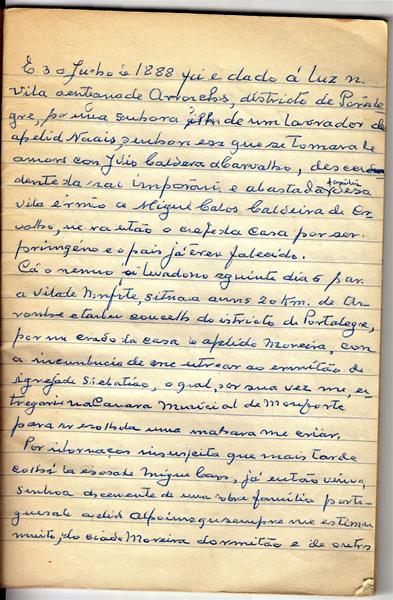 E 30 Junho de 1888 fui e dado á luz n.
Vila alentejana de Arronches, districto de Portale
gre, por uma senhora filha de um lavrador de
apelido Naais, senhora essa que se tomara de
amores com Júlio Caldeira de Carvalho, descen
dente da mai importante e abastada familia dessa
vila e irmão de Miguel Carlos Caldeira de Car
valho, que era então o chefe da casa por ser
primogénito e o pais já era falecido.
Cá o menino foi levado no seguinte dia 6 par
a Vila de Monforte, situada a uns 20 Km. de Ar
ronches e também concelho do districto de Portalegre,
por um criado da casa de apelido Moreira, com
a incumbencia de me entregar ao ermitão da
igreja de S. Sebastião, o qual, por sua vez me, en
tregaria na Camara Municipal de Monforte
para ser escolhida uma mulher para me criar.
Por informações insuspeita que mais tarde
colhi da esposa de Miguel Carlos, já então viuva,
senhora descendente de uma nobre familia portu
guesa de apelido Alpoim e que sempre me estimou
muito, do criado Moreira do ermitão e de outra